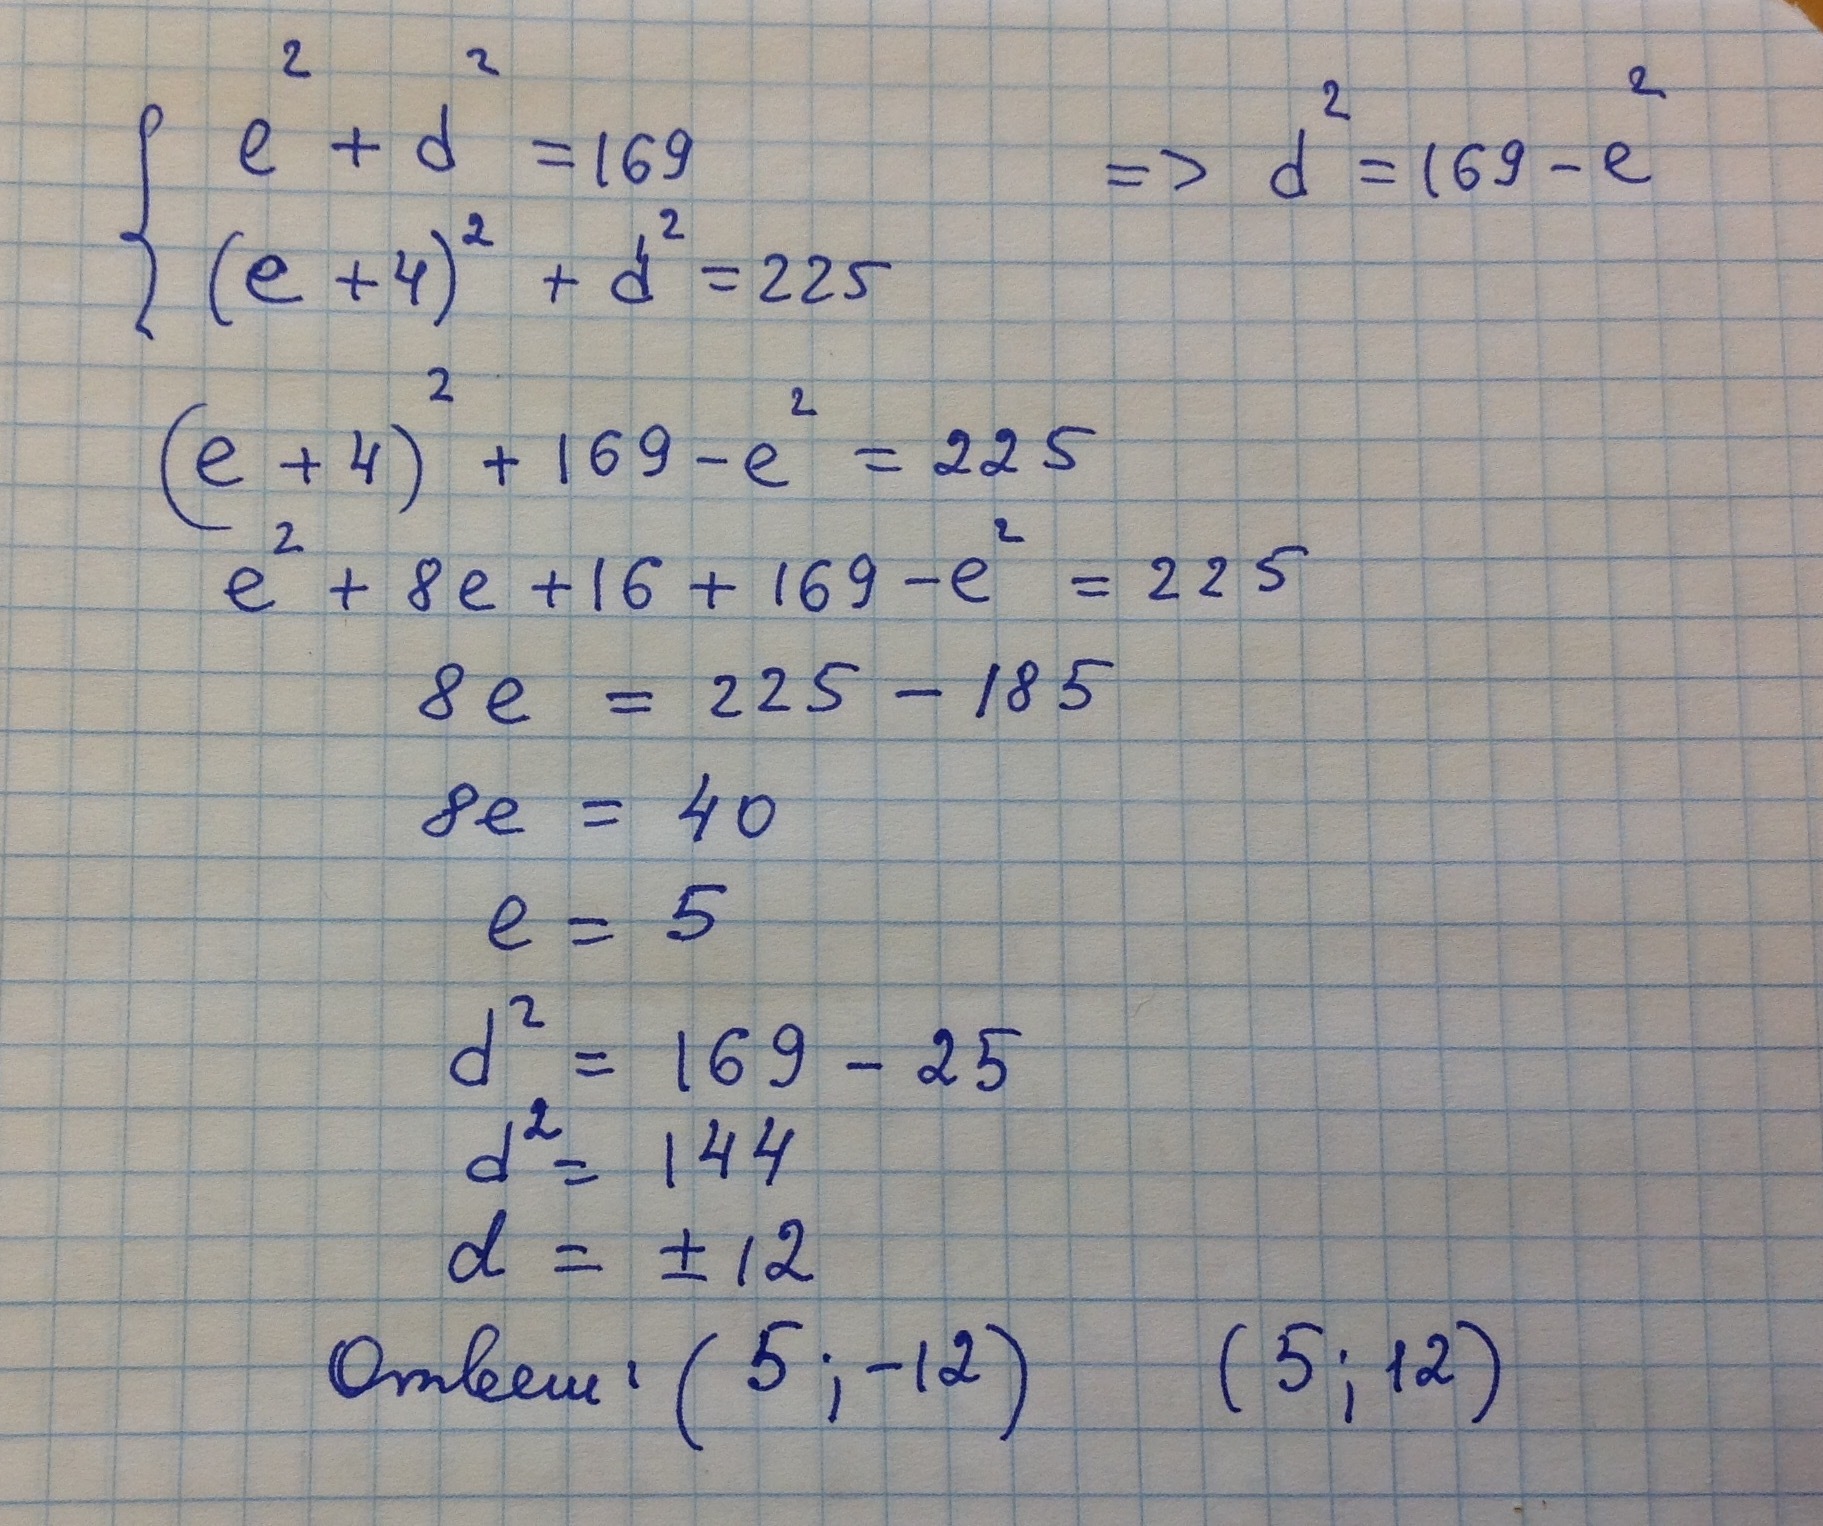 { e² + d² = 169 => d² = 169 - e²
(e + 4)² + d² = 225
(e + 4)² + 169 - e² = 225
e² + 8e + 16 + 169 - e² = 225
8e = 225 - 185
8e = 40
e = 5
d² = 169 - 25
d² = 144
d = ± 12
Ответ: (5; -12) (5; 12)